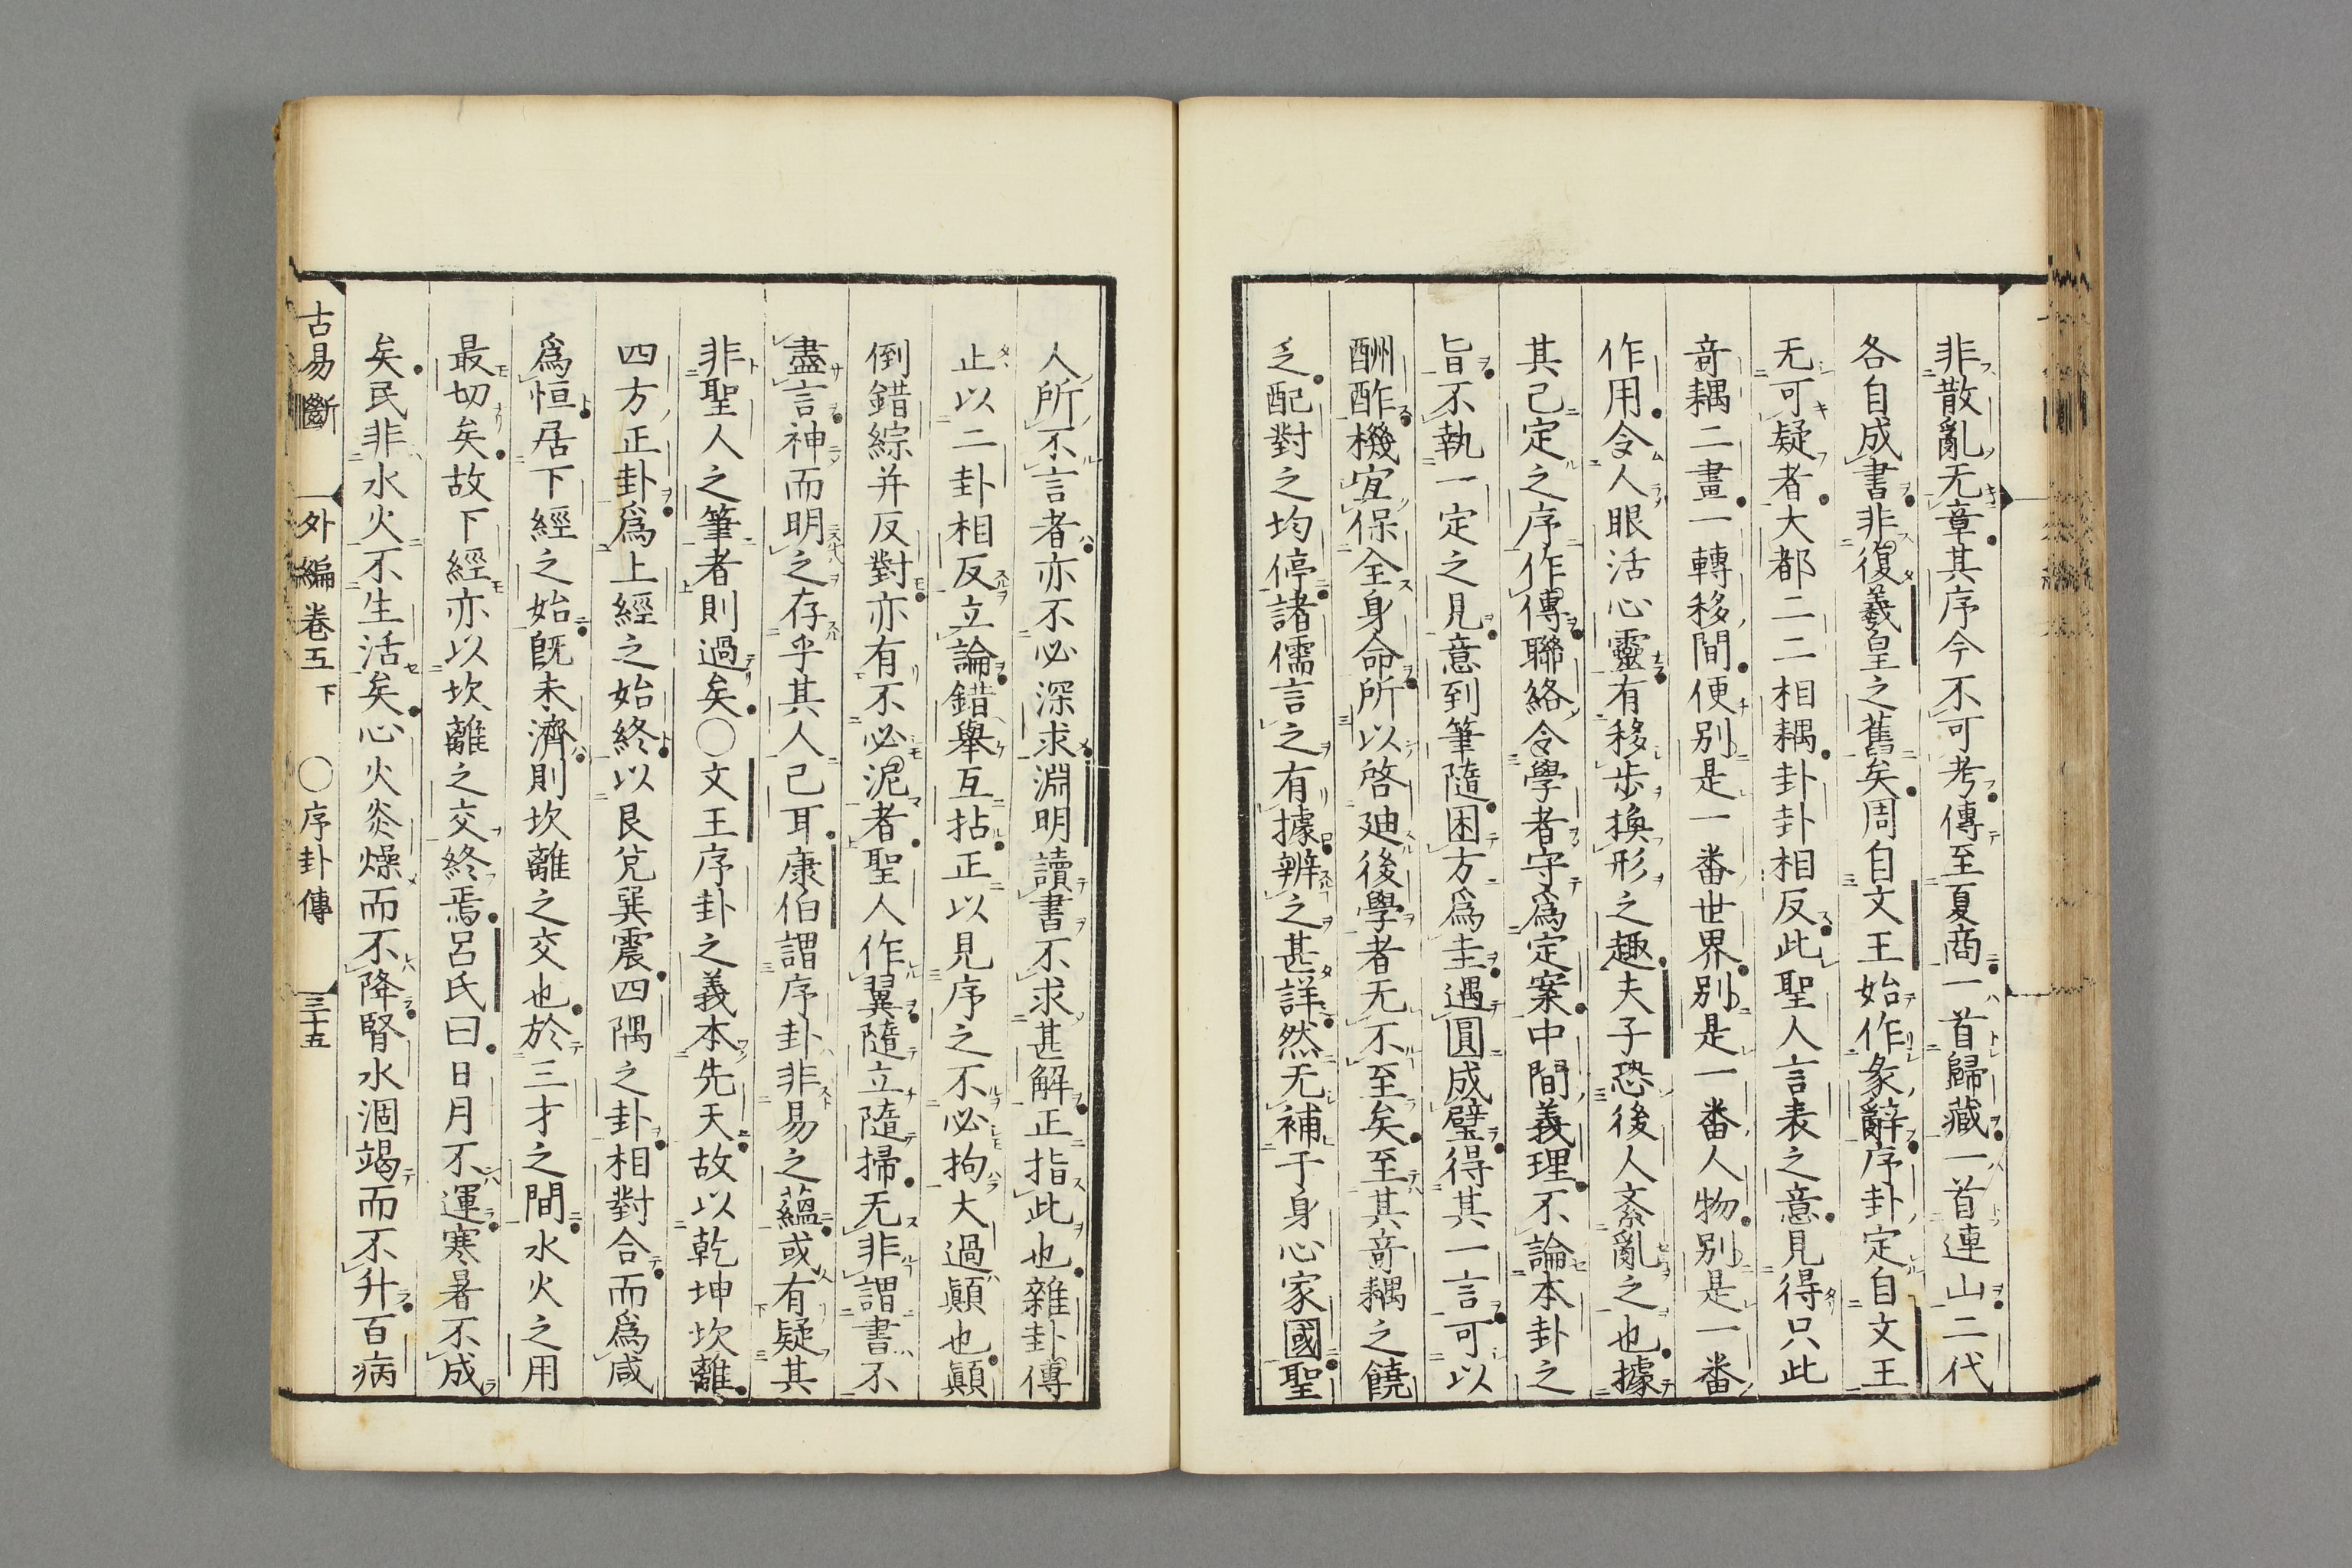 非散亂无章其序今不可考傳至夏商一首歸藏一首連山二代
各自成書非復羲皇之舊矣周自文王始作彖辭序卦定自文王
无可疑者大都二二相耦卦卦相反此聖人言表之意見得只此
竒耦二畫一轉移間便別是一番世界別是一番人物別是一番
作用令人眼活心靈有移歩換形之趣夫子恐後人紊亂之也據
其已定之序作傳聯絡令學者守爲定案中間義理不論本卦之
旨不執一定之見意到筆隨困方爲圭遇圓成璧得其一言可以
酬酢機宜保全身命所以啓廸後學者无不至矣至其竒耦之饒
乏配對之均停諸儒言之有據辨之甚詳然无補于身心家國聖
人所不言者亦不必深求淵明讀書不求甚解正指此也雜卦傳
止以二卦相反立論錯舉互拈正以見序之不必拘大過顚也顚
倒錯綜并反對亦有不必泥者聖人作翼隨立隨掃无非謂書不
盡言神而明之存乎其人已耳康伯謂序卦非易之蘊或有疑其
非聖人之筆者則過矣〇文王序卦之義本先天故以乾坤坎離
四方正卦爲上經之始終以艮兌巽震四隅之卦相對合而爲咸
爲恒居下經之始旣未濟則坎離之交也於三才之間水火之用
最切矣故下經亦以坎離之交終焉呂氏曰日月不運寒暑不成
矣民非水火不生活矣心火炎燥而不降腎水涸竭而不升百病
古易斷 外編卷五下 〇序卦傳 三十五